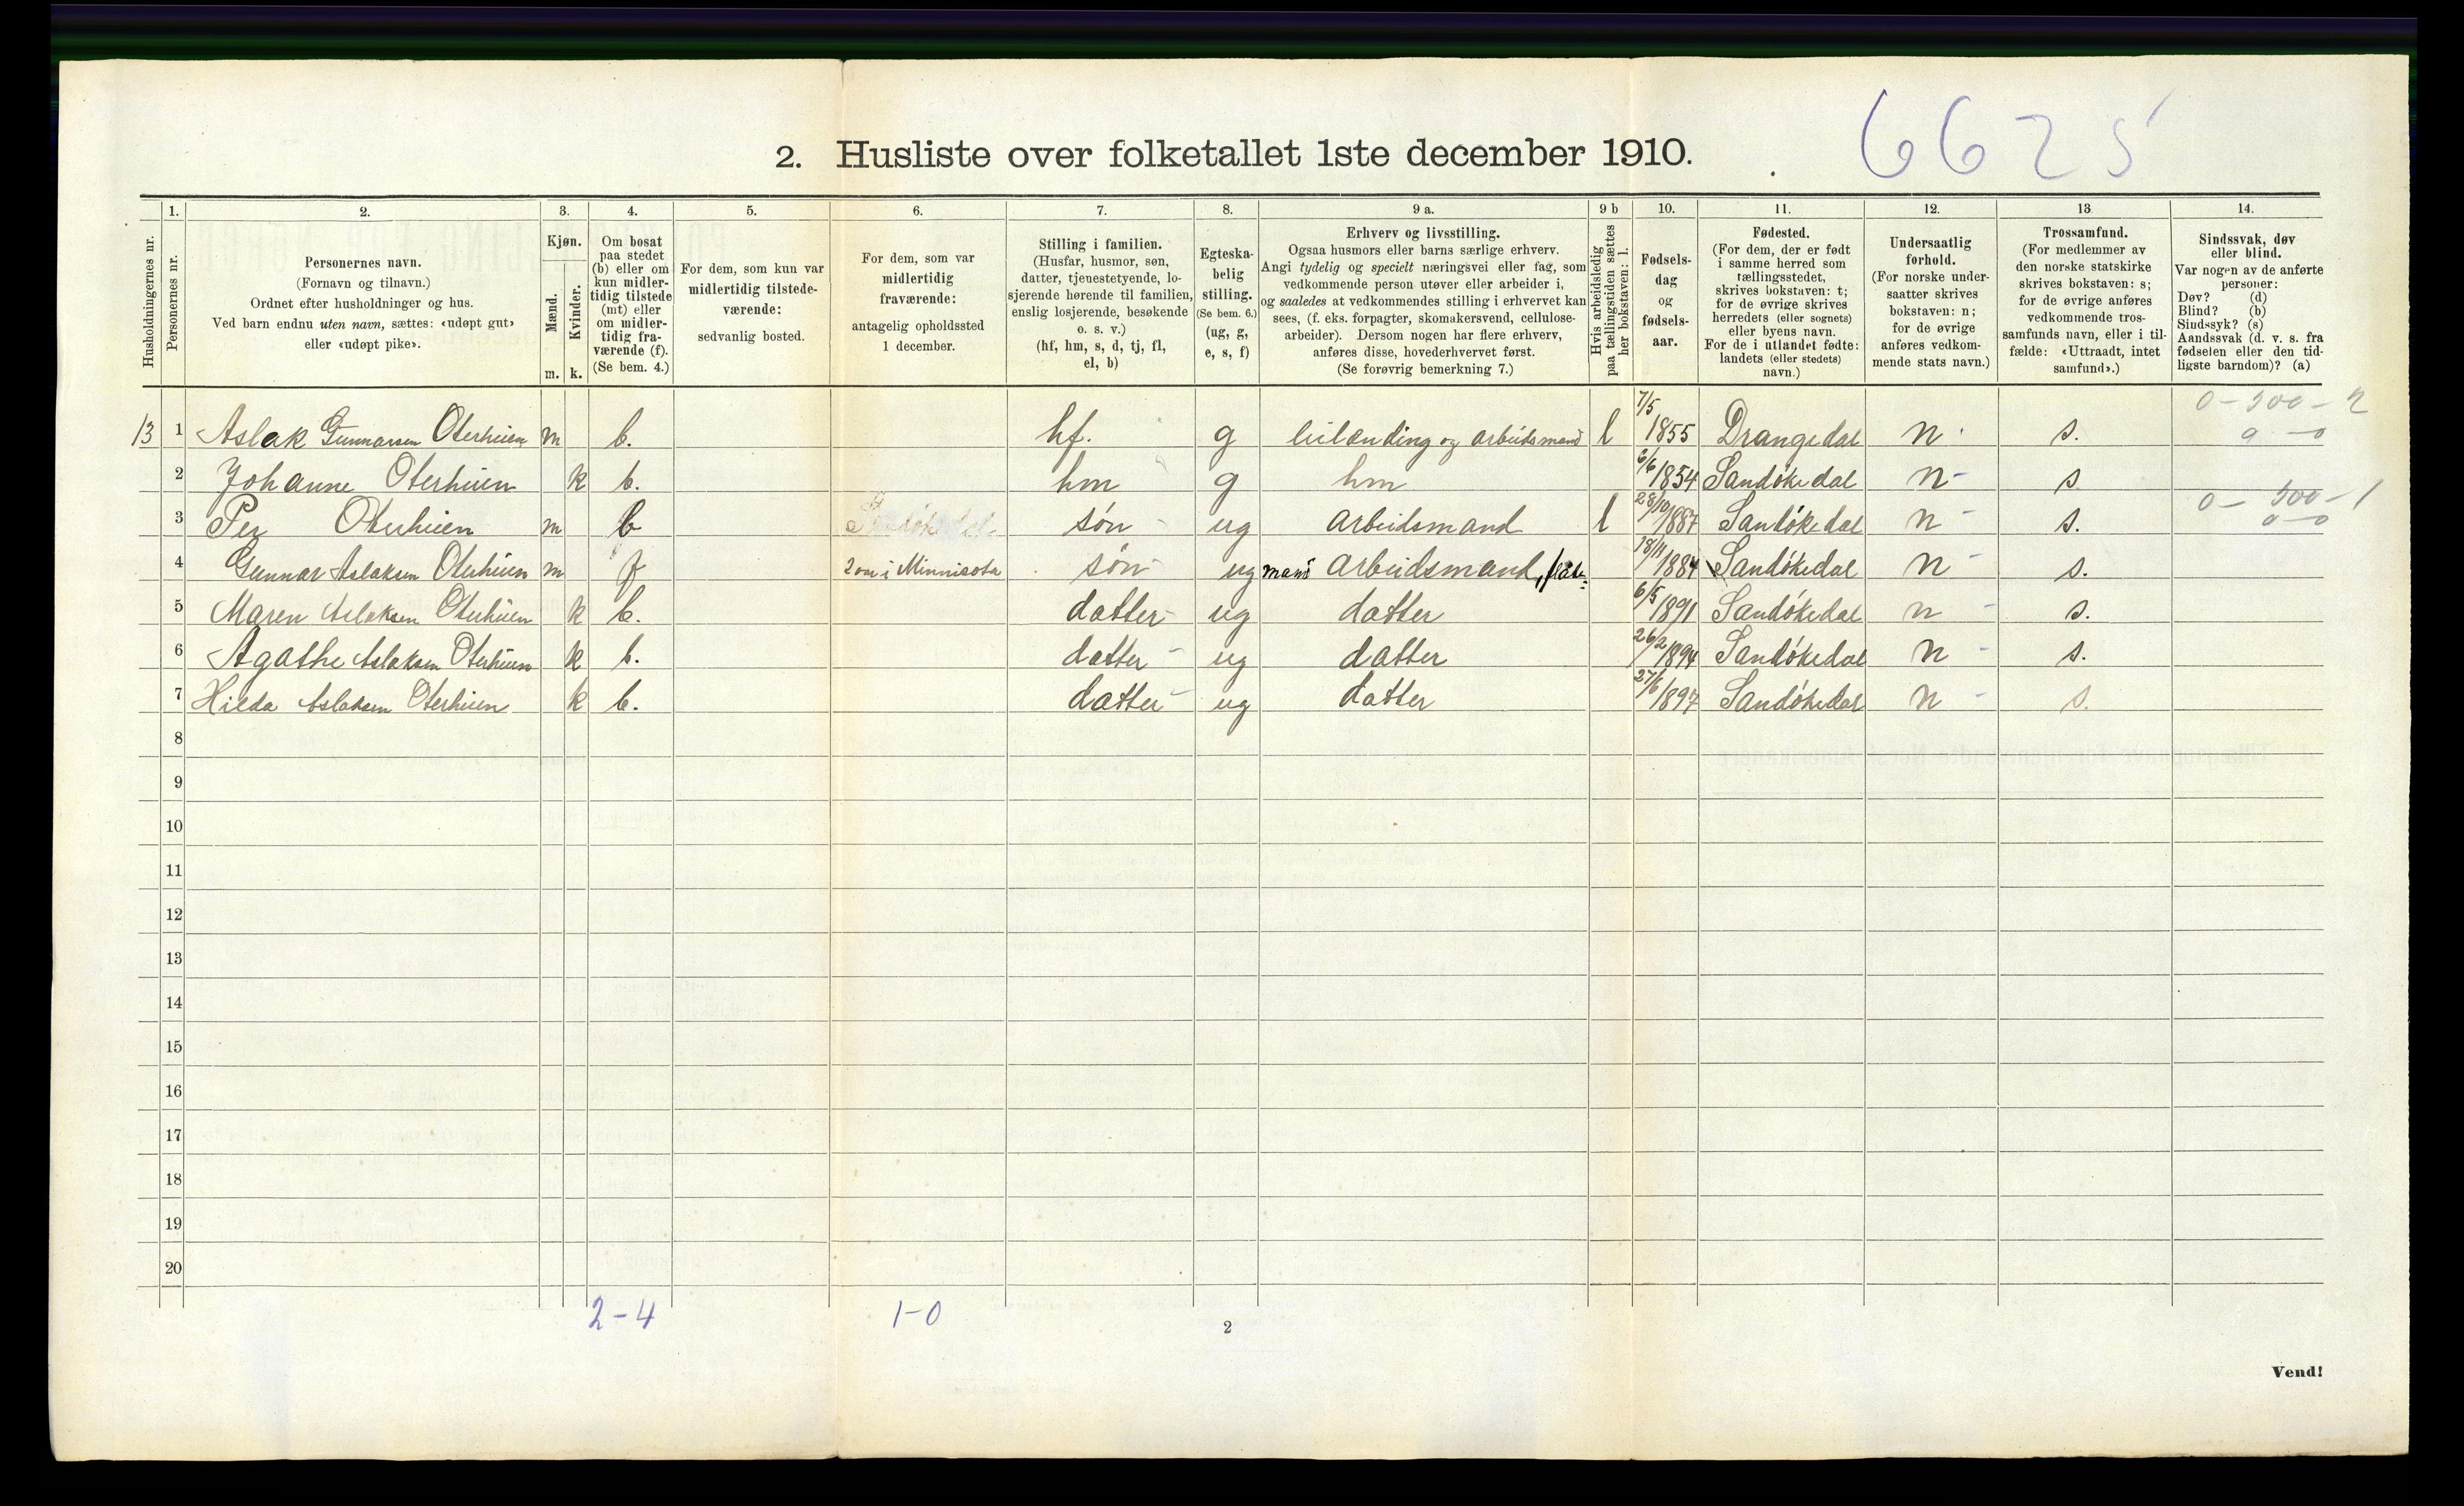 6625
2. Husliste over folketallet 1ste december 1910.
Husholdningernes nr.
1. Personernes nr.
2. Personernes navn.
(Fornavn og tilnavn.)
Ordnet efter husholdninger og hus.
Ved barn endnu uten navn, sættes: «udøpt gut»
eller «udøpt pike».
3. Kjøn.
Mænd. m.
Kvinder. k.
4. Om bosat
paa stedet
(b) eller om
kun midler-
tidig tilstede
(mt) eller
om midler-
tidig fra-
værende (f).
(Se bem. 4.)
5. For dem, som kun var
midlertidig tilstede-
værende:
sedvanlig bosted.
6. For dem, som var
midlertidig
fraværende:
antagelig opholdssted
1 december.
7. Stilling i familien.
(Husfar, husmor, søn,
datter, tjenestetyende, lo-
sjerende hørende til familien,
enslig losjerende, besøkende
o. s. v.)
(hf, hm, s, d, tj, fl,
el, b)
8. Egteska-
belig
stilling.
(Se bem. 6.)
(ug, g,
e, s, f)
9 a. Erhverv og livsstilling.
Ogsaa husmors eller barns særlige erhverv.
Angi tydelig og specielt næringsvei eller fag, som
vedkommende person utøver eller arbeider i,
og saaledes at vedkommendes stilling i erhvervet kan
sees, (f. eks. forpagter, skomakersvend, cellulose-
arbeider). Dersom nogen har flere erhverv,
anføres disse, hovederhvervet først.
(Se forøvrig bemerkning 7.)
9 b Hvis arbeidsledig
paa tællingstiden sættes
her bokstaven: l.
10. Fødsels-
dag
og
fødsels-
aar.
11. Fødested.
(For dem, der er født
i samme herred som
tællingsstedet,
skrives bokstaven: t;
for de øvrige skrives
herredets (eller sognets)
eller byens navn.
For de i utlandet fødte:
landets (eller stedets)
navn.)
12. Undersaatlig
forhold.
(For norske under-
saatter skrives
bokstaven: n;
for de øvrige
anføres vedkom-
mende stats navn.)
13 Trossamfund.
(For medlemmer av
den norske statskirke
skrives bokstaven: s;
for de øvrige anføres
vedkommende tros-
samfunds navn, eller i til-
fælde: «Uttraadt, intet
samfund».)
14. Sindssvak, døv
eller blind.
Var nogen av de anførte
personer:
Døv? (d)
Blind? (b)
Sindssyk? (s)
Aandssvak (d. v. s. fra
fødselen eller den tid-
ligste barndom)? (a)
13 1 Aslak Gunnarsen Oterhuien m b. hf. g leilænding og arbeidsmand l 7/5 1855 Drangedal n s. 0-500-2 0-0
2 Johanne Oterhuien k b. hm g hm 6/6 1854 Sandøkedal n s
3 Per Oterhuien m b søn ug arbeidsmand l 28/10 1887 Sandøkedal n s. 0-500-1 0-0
4 Gunnar Aslaksen Oterhuien m f i Minnisota søn ug arbeidsmand, 18/11 1884 Sandøkedal n s.
5 Maren Aslaksen Oterhuien k b. datter ug datter 6/5 1891 Sandøkedal n s.
6 Agathe Aslaksen Oterhuien k b. datter ug datter 26/2 1894 Sandøkedal n s.
7 Hilda Aslaksen Oterhuien k b. datter ug datter 27/6 1897 Sandøkedal n s.
8
9
10
11
12
13
14
15
16
17
18
19
20
2-4 1-0
2
Vend!